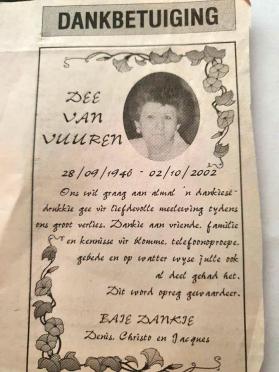 DANKBETUIGING
DEE
VAN
VUUREN
28/09/1946 - 02/10/2002
Ons wil graag aan almal 'n dankiese-
drukkie gee vir liefdevolle meelewing tydens
ons groot verlies. Dankie aan vriende, familie
en kennisse vir blomme, telefoonoproepe,
gebede en op watter wyse julle ook
al deel gehad het.
Dit word opreg gewaardeer.
BAIE DANKIE
Denis, Christo en Jacques